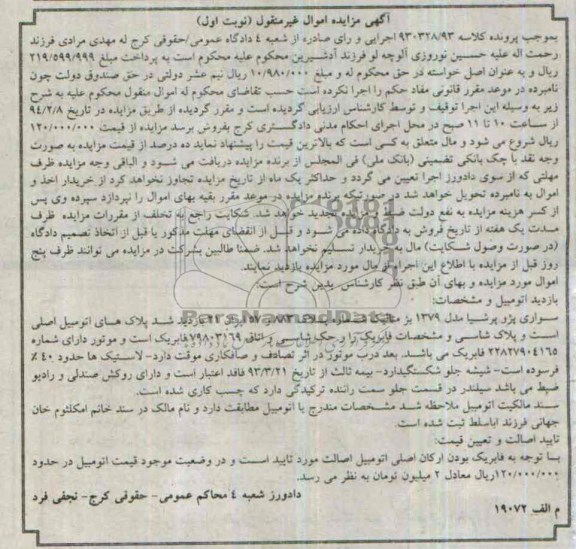 آگهی مزایده اموال غیرمنقول (نوبت اول)
بموجب پرونده کلاسه ۹۳۰۳۲۸/۹۳ اجرایی و رای صادره از شعبه ٤ دادگاه عمومی/حقوقی کرج له مهدی مرادی فرزند
رحمت اله علیه حسین نوروزی آلوچه لو فرزند آدشیرین محکوم علیه محکوم است به پرداخت مبلغ ۲۱۹/۵۹۹/۹۹۹
ریال و به عنوان اصل خواسته در حق محکوم له و مبلغ ۱۰/۹۸۰/۰۰۰ ریال نیم عشر دولتی در حق صندوق دولت چون
نامبرده در موعد مقرر قانونی مفاد حکم را اجرا نکرده است حسب تقاضای محکوم له اموال منقول محکوم علیه به شرح
زیر به وسیله این اجرا توقیف و توسط کارشناس ارزیابی گردیده است و مقرر گردیده از طریق مزایده در تاریخ ۹٤/۲/۸
از ساعت ۱۰ تا ۱۱ صبح در محل اجرای احکام مدنی دادگستری کرج بفروش برسد مزایده از قیمت ۱۲۰/۰۰۰/۰۰۰
ریال شروع می شود و مال متعلق به کسی است که بالاترین قیمت را پیشنهاد نماید ده درصد از قیمت مزایده به صورت
وجه نقد با چک بانکی تضمینی (بانک ملی) فی المجلس از برنده مزایده دریافت می شود و الباقی وجه مزایده ظرف
مهلتی که از سوی دادورز اجرا تعیین می گردد و حداکثر یک ماه از تاریخ مزایده تجاوز نخواهد کرد از خریدار اخذ و
اموال به نامبرده تحویل خواهد شد در صورتیکه برنده مزایده در موعد مقرر بقیه بهای اموال را نپردازد سپرده وی پس
از کسر هزینه مزایده به نفع دولت ضبط و مزایده تجدید خواهد شد. شکایت راجع به تخلف از مقررات مزایده ظرف
مدت یک هفته از تاریخ فروش به دادگاه داده می شود و قبل از انقضای مهلت مذکور یا قبل از اتخاذ تصمیم دادگاه
(در صورت وصول شکایت) مال به خریدار تسلیم نخواهد شد. ضمنا طالبین بشرکت در مزایده می توانند ظرف پنج
روز قبل از مزایده با اطلاع این اجرا از مال مورد مزایده بازدید نمایند.
اموال مورد مزایده و بهای آن طبق نظر کارشناس بدین شرح است.
بازدید اتومبیل و مشخصات:
سواری پژو پرشیا مدل ۱۳۷۹ بژ متالیک شماره بازدید شد پلاک های اتومبیل اصلی
است و پلاک شاسی و مشخصات فابریک را و حک شاسی و اتاق ۷۹۸۰۳۱۶۹ فابریک است و موتور دارای شماره
۲۲۸۲۷۹۰٤۱٦۵ فابریک می باشد. بعد درب موتور در اثر تصادف و صافکاری موقت دارد- لاستیک ها حدود ٤۰ ٪
فرسوده است- شیشه جلو شکستگیدارد- بیمه ثالث از تاریخ ۹۳/۳/۲۱ فاقد اعتبار است و دارای روکش صندلی و رادیو
ضبط می باشد سیلندر در قسمت جلو سمت راننده ترکیدگی دارد که چسب کاری شده است.
سند مالکیت اتومبیل ملاحظه شد مشخصات مندرج با اتومبیل مطابقت دارد و نام مالک در سند خانم امکلثوم خان
جهانی فرزند اباسلط ثبت شده است.
تایید اصالت و تعیین قیمت:
با توجه به فابریک بودن ارکان اصلی اتومبیل اصالت مورد تایید است و در وضعیت موجود قیمت اتومبیل در حدود
۱۲۰/۰۰۰/۰۰۰ریال معادل ۲ میلیون تومان به نظر می رسد.
دادورز شعبه ٤ محاکم عمومی- حقوقی کرج- نجفی فرد
م الف ۱۹۰۷۲
ParsNamadData